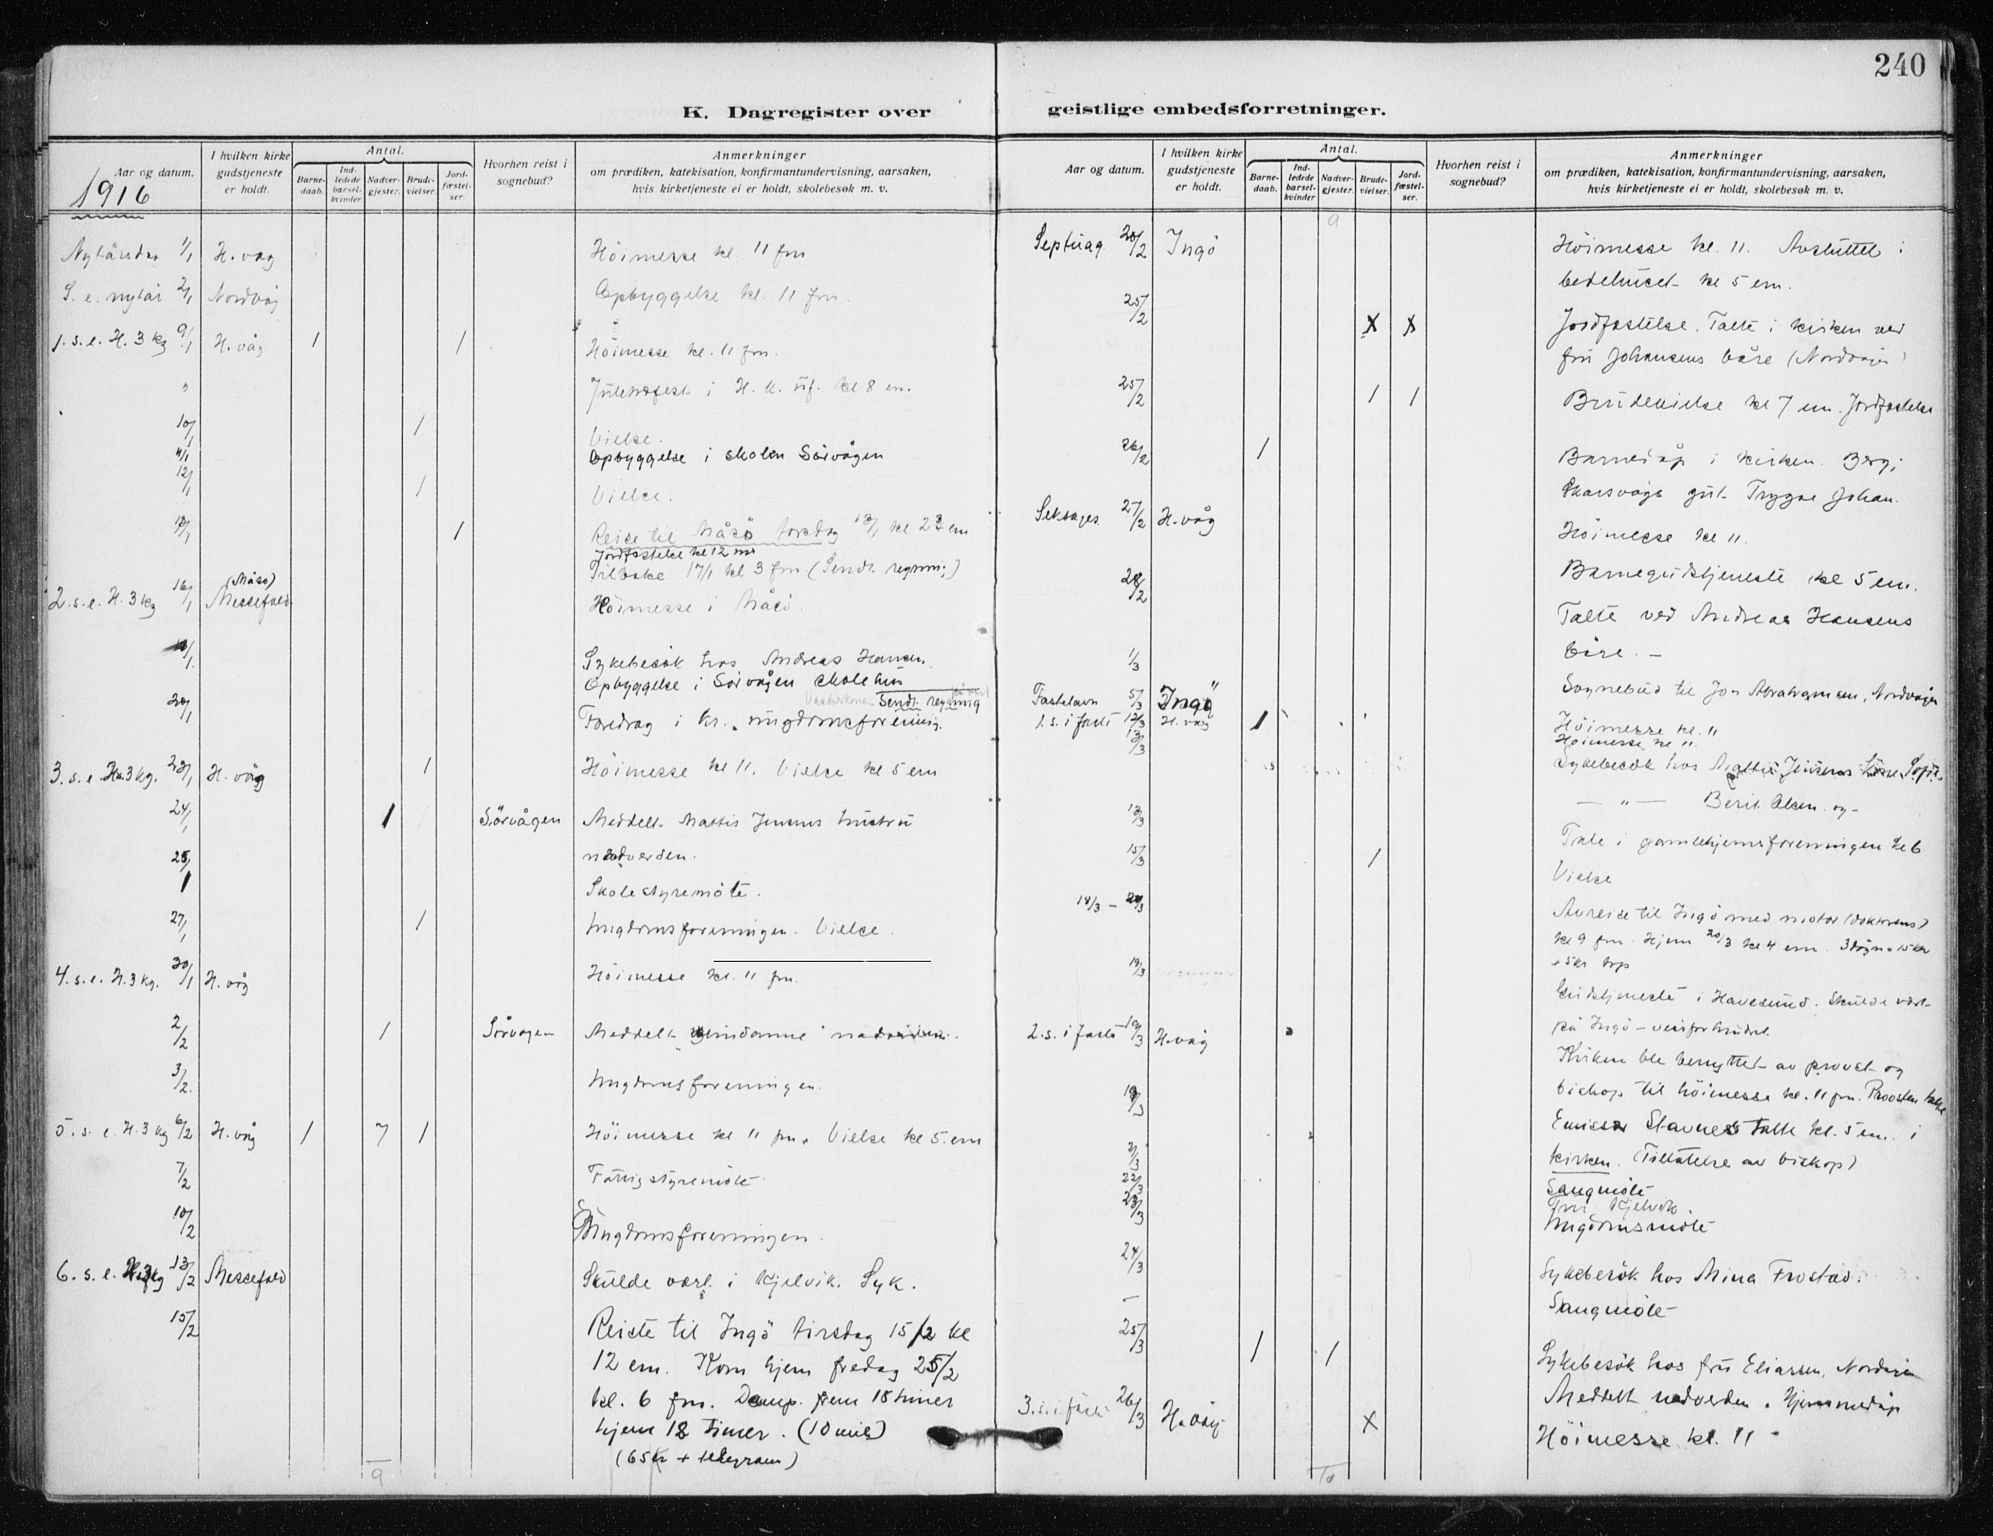 240
K. Dagregister over
Aar og datum.
I hvilken kirke gudstjeneste er holdt.
Antal.
Barnedaab.
Indledede barselkvinder.
Nadvergjester.
Brudevielser.
Jordfæstelser.
Hvorhen reist i sognebud?
Anmerkninger
om prædiken, katekisation, konfirmantundervisning, aarsaken,
hvis kirketjeneste ei er holdt, skolebesøk m. v.
1916
Nytårsdag 1/1 H. våg Höimesse kl. 11 fm
S. e. nytår 2/1 Nordvåg Opbyggelse kl. 11 fm.
1. s. e. H. 3 kg 9/1 H. våg 1 1 Höimesse kl. 11 fm.
" Juletrefest i H. k. uf. kl 8 em.
10/1 1 Vielse.
11/1 Opbyggelse i skolen Sörvågen
12/1 1 Vielse.
13/1 1 Reise til Måsö torsdag 13/1 kl 2 em
Jordfæstelse kl 12
Tilbake 17/1 kl 3 fm (Sendt regning)
(Måsö)
2. s. e. H. 3 kg 16/1 Messefald Höimesse i Måsö.
Sykebesök hos Andreas Hansen.
Opbyggelse i Sörvågen skolehus
Sendt regning
20/1 Foredrag i kr. ungdomsforening.
3. s. e. H. 3 kg. 23/1 H. våg 1 Höimesse kl 11. Vielse kl 5 em
24/1 1 Sörvågen Meddelt Mattis Jensens hustru
nadverden.
25/1 Skolestyremöte.
27/1 1 Ungdomsforeningen. Vielse.
4. s. e. H. 3 kg. 30/1 H. våg Höimesse kl. 11 fm.
2/2 1 Sörvågen Meddelt
3/2. Ungdomsforeningen.
5. s. e. H. 3 kg 6/2 H. våg 1 7 1 Höimesse kl 11 fm. Vielse kl 5. em
7/2 Fattigstyremöte.
10/2 Ungdomsforeningen.
6. s. e. H. 3 kg 13/2 Messefald Skulde vært i Kjelvik. Syk.
15/2 Reiste til Ingö tirsdag 15/2 kl
12 em. Kom hjem fredag 25/2
kl. 6 fm. Damp. frem 18 timer
hjem 18 timer. (10 mil)
(65 kr + telegram)
9
geistlige embedsforretninger.
Aar og datum.
I hvilken kirke gudstjeneste er holdt.
Antal.
Barnedaab.
Indledede barselkvinder
Nadvergjester.
Brudevielser.
Jordfæstelser.
Hvorhen reist i sognebud?
Anmerkninger
om prædiken, katekisation, konfirmantundervisning, aarsaken,
hvis kirketjeneste ei er holdt, skolebesøk m. v.
9
Septuag 20/2 Ingö Höimesse kl. 11. Avsluttet i
bedehuset kl 5 em.
25/2 X X Jordfæstelse. Talte i kirken ved
fru Johansens båre (Nordvågen)
25/2 1 1 Brudevielse kl 7 em. Jordfæstelse
26/2 1 Barnedåp i kirken. Berg,
Skarsvågs gut Trygve Johan.
Seksages. 27/2 H. våg Höimesse kl 11.
Barnegudstjeneste kl 5 em.
28/2 Talte ved Andreas Hansens
båre. —
1/3 Sognebud til Jon Abrahamsen, Nordvågen
Fastelavn 5/3 Ingö Höimesse kl. 11
1. s. i faste 12/3 H. våg 1 Höimesse kl 11.
13/3 Sykebesök hos Mattis Jensens
— " — Berit Olsen og —
13/3 Tale i gamlehjemsforeningen kl 6
15/3 1 Vielse
Avreise til Ingö med motor (doktorens)
kl 9 fm. Hjem 20/3 kl 4 em.
19/3 Gudstjeneste i Havösund. Skulde vært
på Ingö – veirforhindret.
2. s. i faste 19/3 H. våg Kirken ble benyttet av provst og
biskop til höimesse kl. 11 fm. Provsten talte
19/3 Emissær Stavnes talte kl. 5 em. i
kirken. (Tillatelse av biskop)
Sangmöte
22/3 Fru Kjelvik
23/3 Ungdomsmöte
24/3 Sykebesök hos Mina Frostad.
— Sangmöte
25/3 1 1 Sykebesök hos fru Eliassen, Nordvågen
Meddelt nadverden. Hjemmedåp
3. s. i faste 26/3 H. våg X Höimesse kl. 11